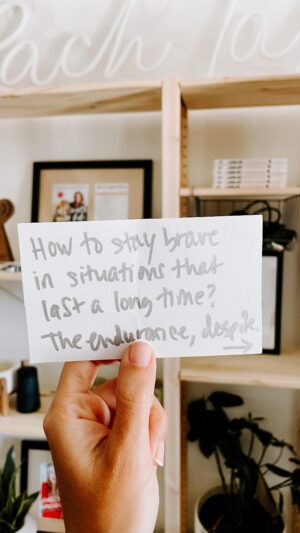 How to stay brave
in situations that
last a long time?
The endurance, despite